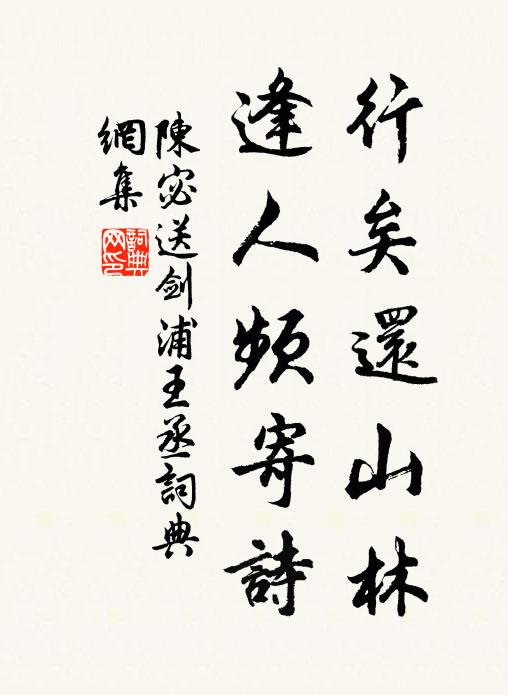 行矣還山林
逢人頻寄詩
陳宓送劍浦王丞詞典
網集
詞典
网印